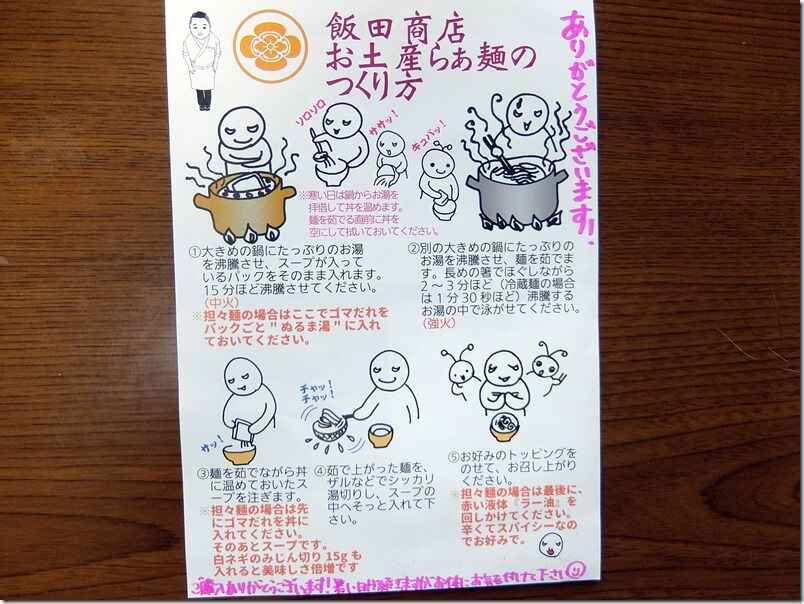 飯田商店
お土産らぁ麺の
つくり方
ありがとうございます!
ソロソロ
ササッ!
キュパッ!
※寒い日は鍋からお湯を
拝借して丼を温めます。
麺を茹でる直前に丼を
空にして拭いておいてください。
①大きめの鍋にたっぷりのお湯
を沸騰させ、スープが入って
いるパックをそのまま入れます。
15分ほど沸騰させてください。
(中火)
※担々麺の場合はここでゴマだれを
パックごと"ぬるま湯"に入れ
ておいてください。
②別の大きめの鍋にたっぷりの
お湯を沸騰させ、麺を茹でま
す。長めの箸でほぐしながら
2～3分ほど(冷蔵麺の場合
は1分30秒ほど)沸騰する
お湯の中で泳がせてください。
(強火)
サッ!
チャッ!
チャッ!
③麺を茹でながら丼
に温めておいたス
ープを注ぎます。
※担々麺の場合は先
にゴマだれを丼に
入れてください。
そのあとスープです。
白ネギのみじん切り15gも
入れると美味しさ倍増です
④茹で上がった麺を、
ザルなどでシッカリ
湯切りし、スープの
中へそっと入れて下
さい。
⑤お好みのトッピングを
のせて、お召し上がり
ください。
※担々麺の場合は最後に、
赤い液体『ラー油』を
回しかけてください。
辛くてスパイシーなの
でお好みで。
ご購入ありがとうございます!暑い日が続きますがお体にお気を付けて下さい